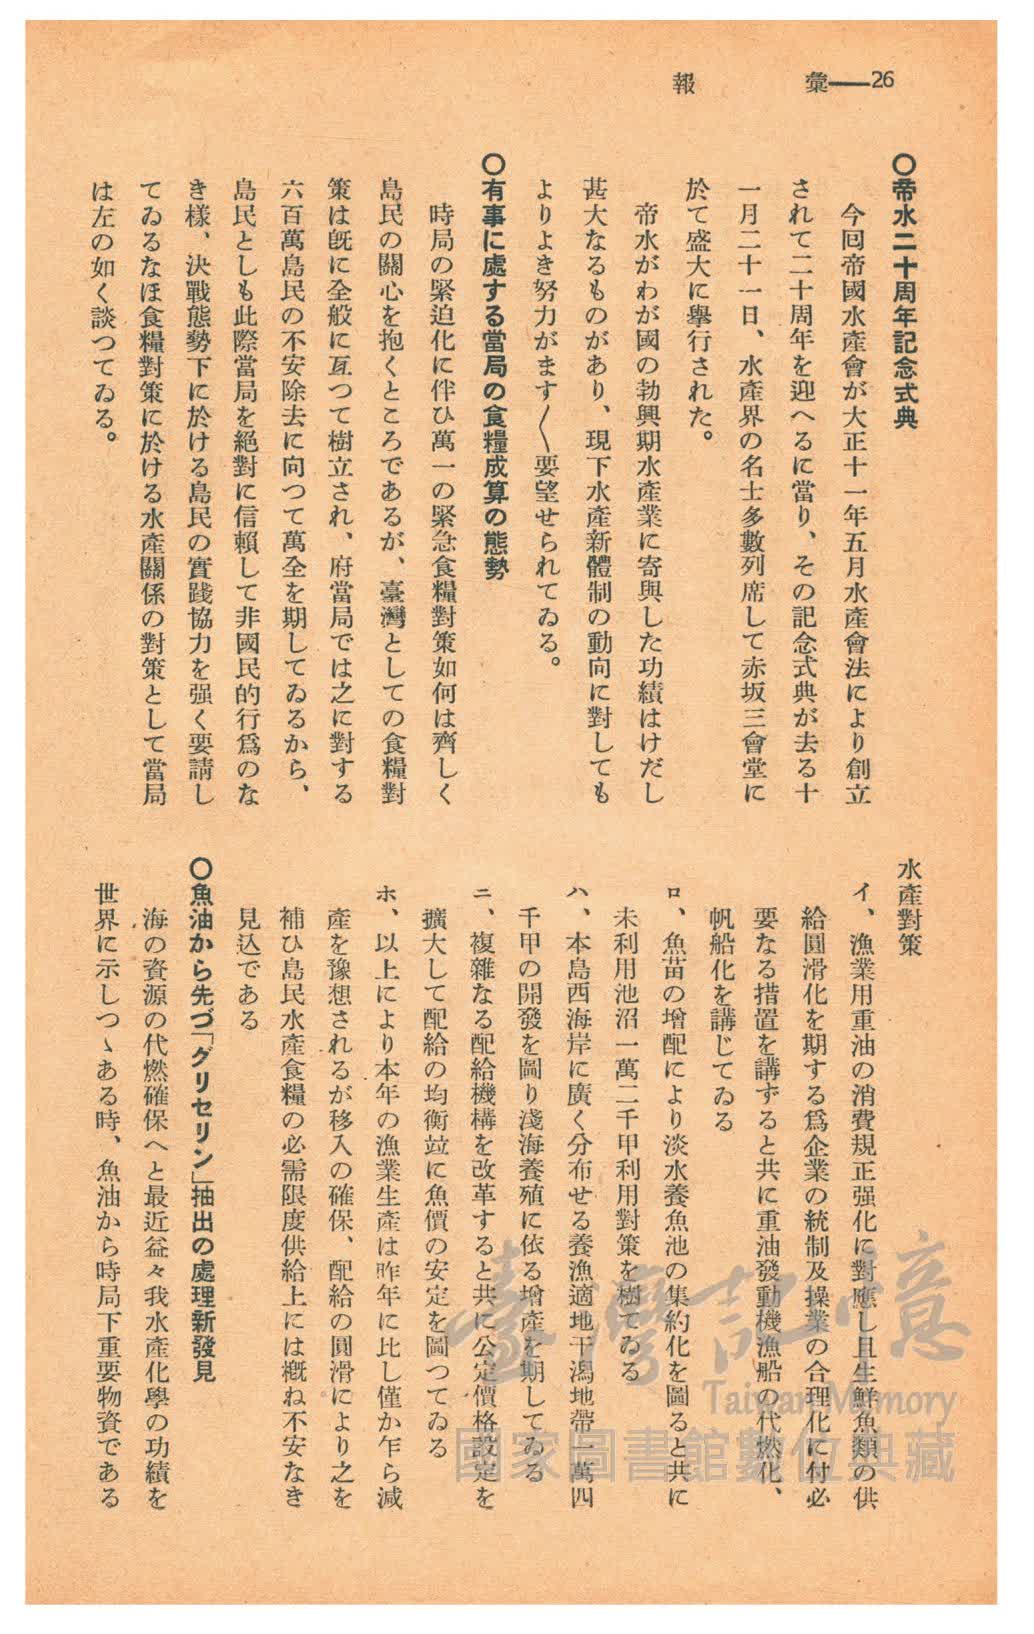 彙報 ――26
〇帝水二十周年記念式典
今囘帝國水產會が大正十一年五月水產會法により創立
されて二十周年を迎へるに當り、その記念式典が去る十
一月二十一日、水產界の名士多數列席して赤坂三會堂に
於て盛大に擧行された。
帝水がわが國の勃興期水產業に寄與した功績はけだし
甚大なるものがあり、現下水產新體制の動向に對しても
よりよき努力がます〱要望せられてゐる。
〇有事に處する當局の食糧成算の態勢
時局の緊迫化に伴ひ萬一の緊急食糧對策如何は齊しく
島民の關心を抱くところであるが、臺灣としての食糧對
策は旣に全般に亙つて樹立され、府當局では之に對する
六百萬島民の不安除去に向つて萬全を期してゐるから、
島民としも此際當局を絕對に信賴して非國民的行爲のな
き樣、決戰態勢下に於ける島民の實踐協力を强く要請し
てゐるなほ食糧對策に於ける水產關係の對策として當局
は左の如く談つてゐる。
水產對策
イ、漁業用重油の消費規正强化に對應し且生鮮魚類の供
給圓滑化を期する爲企業の統制及操業の合理化に付必
要なる措置を講ずると共に重油發動機漁船の代燃化、
帆船化を講じてゐる
ロ、魚苗の增配により淡水養魚池の集約化を圖ると共に
未利用池沼一萬二千甲利用對策を樹てゐる
ハ、本島西海岸に廣く分布せる養漁適地干潟地帶一萬四
千甲の開發を圖り淺海養殖に依る增產を期してゐる
ニ、複雜なる配給機構を改革すると共に公定價格設定を
擴大して配給の均衡竝に魚價の安定を圖つてゐる
ホ、以上により本年の漁業生產は昨年に比し僅か乍ら減
產を豫想されるが移入の確保、配給の圓滑により之を
補ひ島民水產食糧の必需限度供給上には槪ね不安なき
見込である
〇魚油から先づ「グリセリン」抽出の處理新發見
海の資源の代燃確保へと最近益々我水產化學の功績を
世界に示しつゝある時、魚油から時局下重要物資である
臺灣記憶
Taiwan Memory
國家圖書館數位典藏